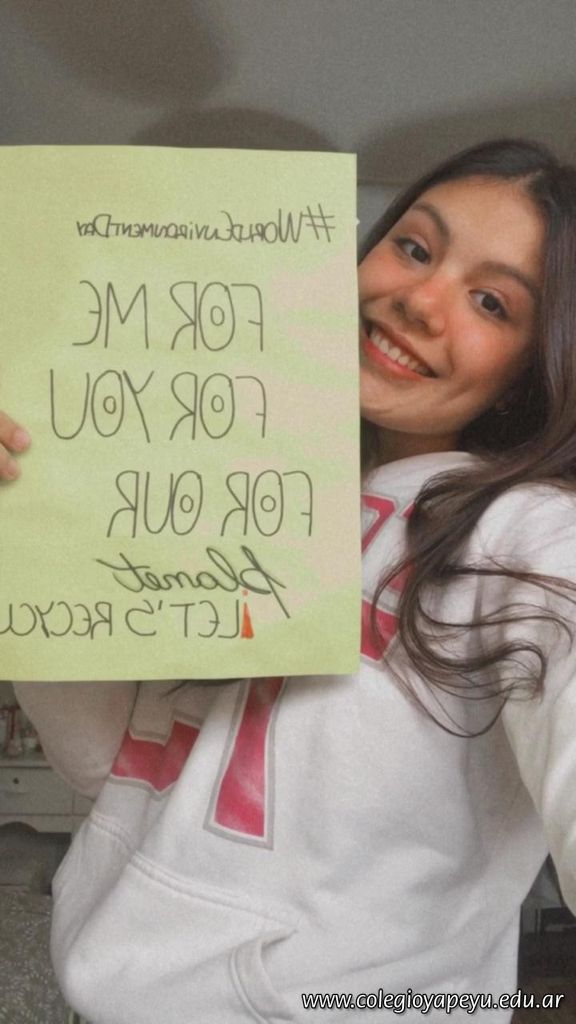 #WORLDENVIRONMENTDAY
FOR ME
FOR YOU
FOR OUR
planet
¡LET'S RECYCL
www.colegioyapeyu.edu.ar